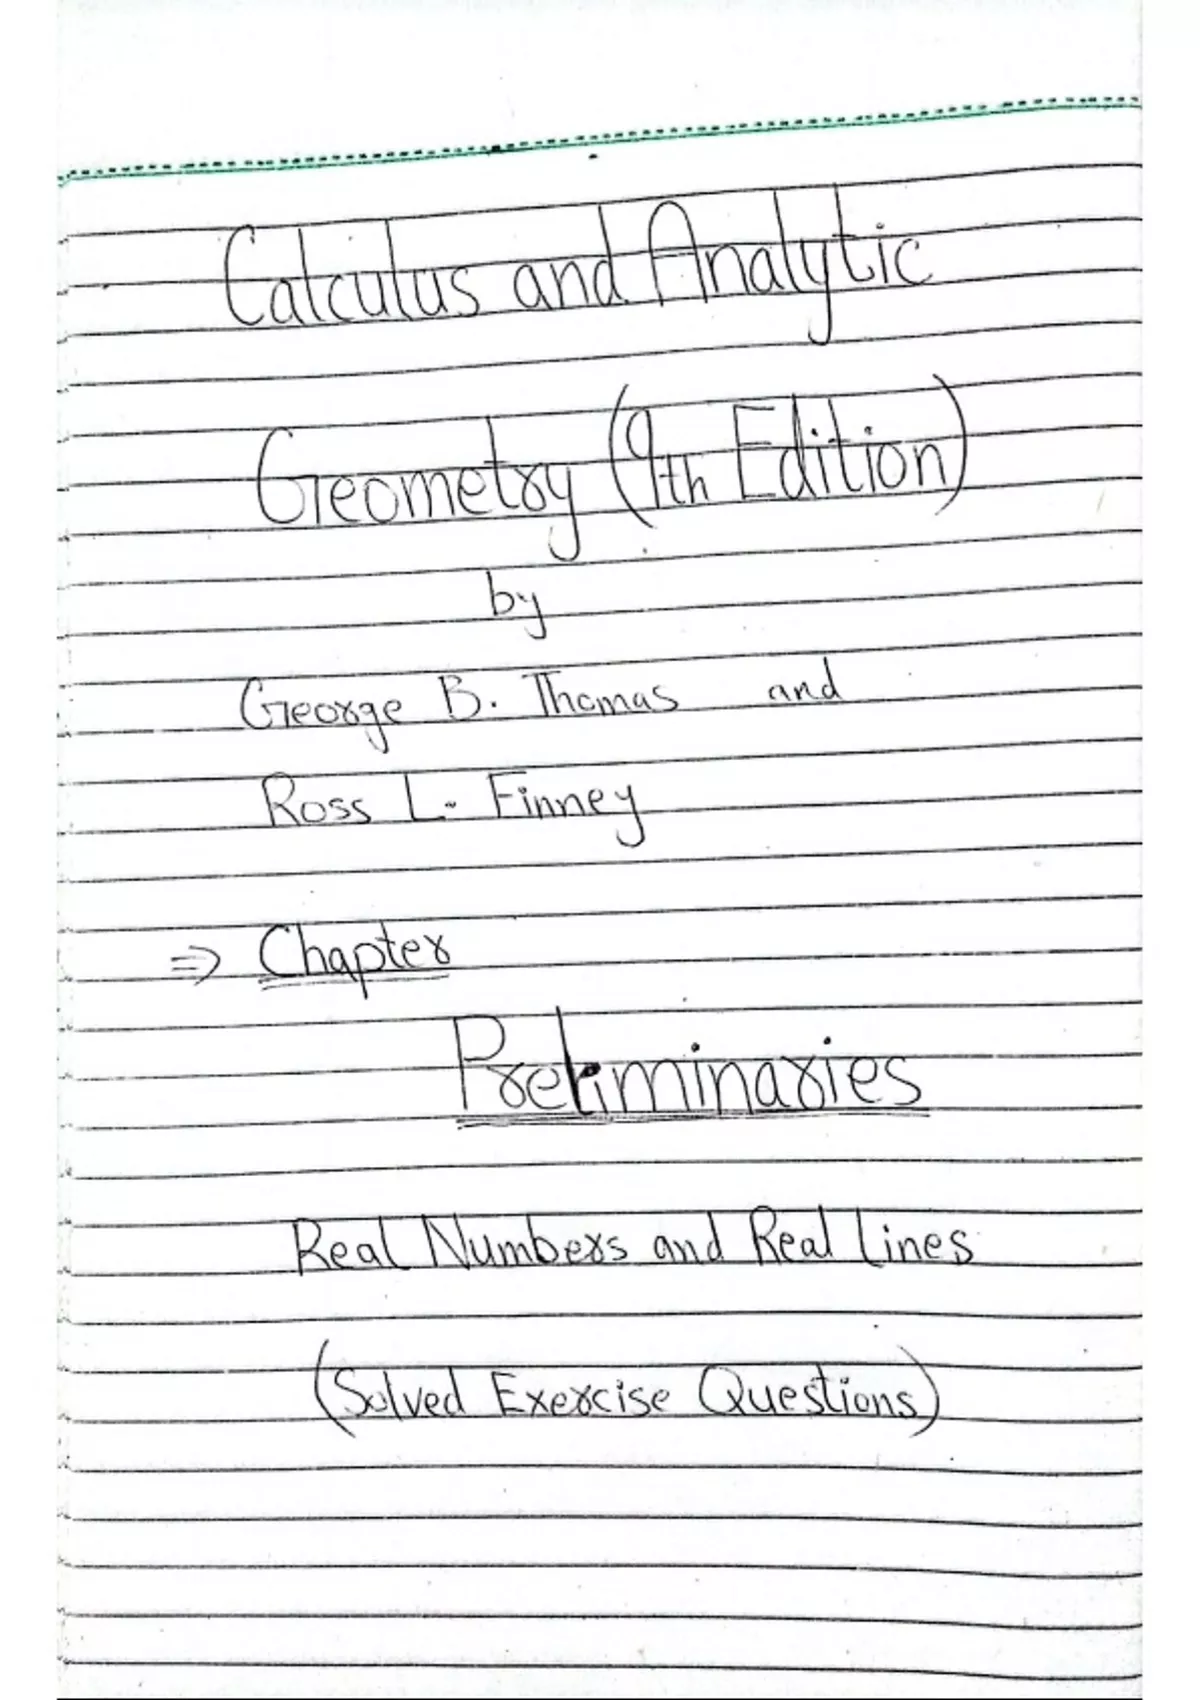 Calculus and Analytic
Geometry (9th Edition)
by
George B. Thomas and
Ross L. Finney
⇒ Chapter
Preliminaries
Real Numbers and Real Lines
(Solved Exercise Questions)